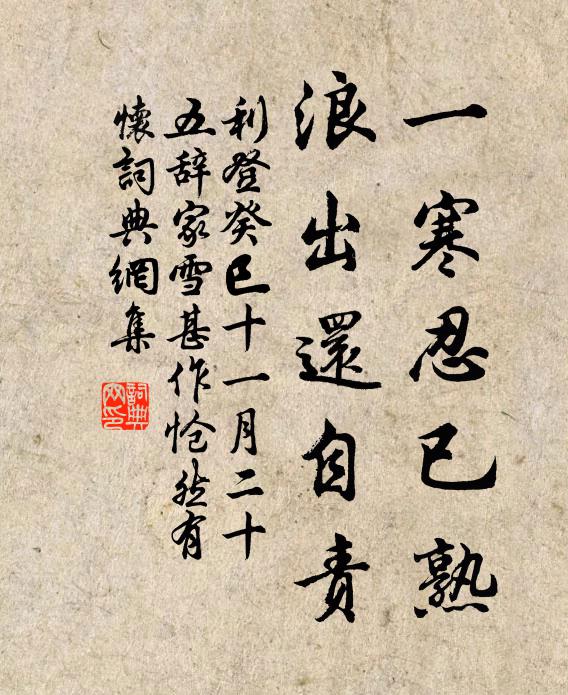 一寒忍已熟
浪出還自責
利登癸巳十一月二十
五辞家雪甚作怆然有
懷詞典網集
詞典网印